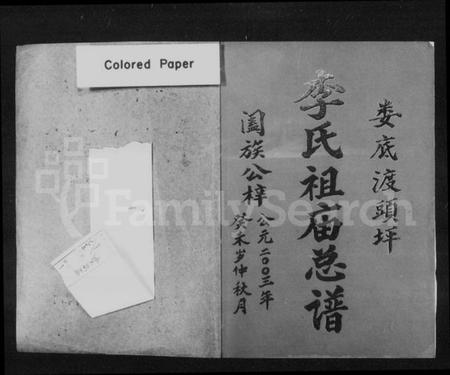 Colored Paper
娄底渡頭坪
李氏祖庙总谱
阖族公梓
公元二〇〇三年
癸未岁仲秋月
FamilySearch